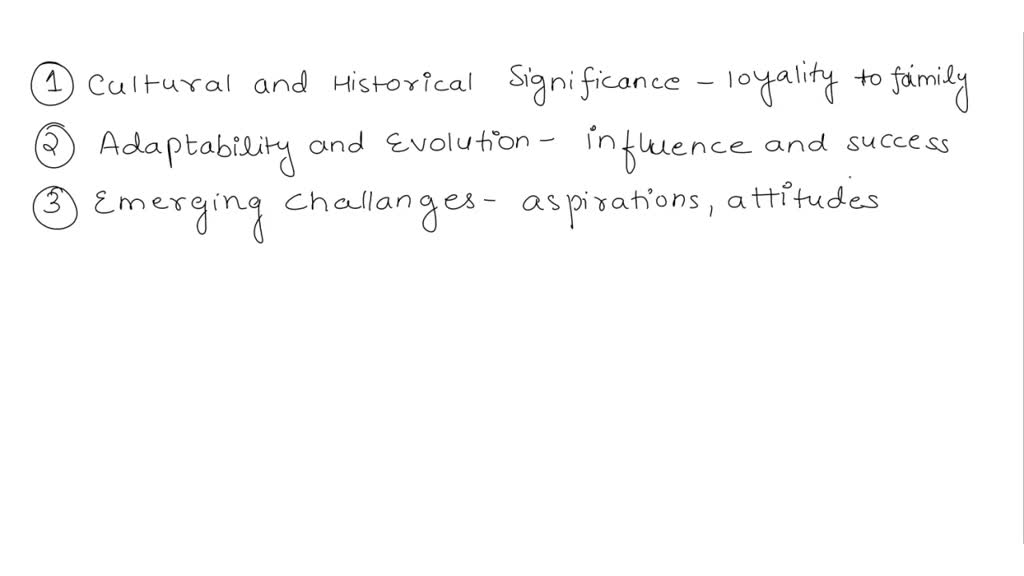 1 Cultural and Historical Significance - loyality to family
2 Adaptability and Evolution - influence and success
3 Emerging challanges - aspirations, attitudes